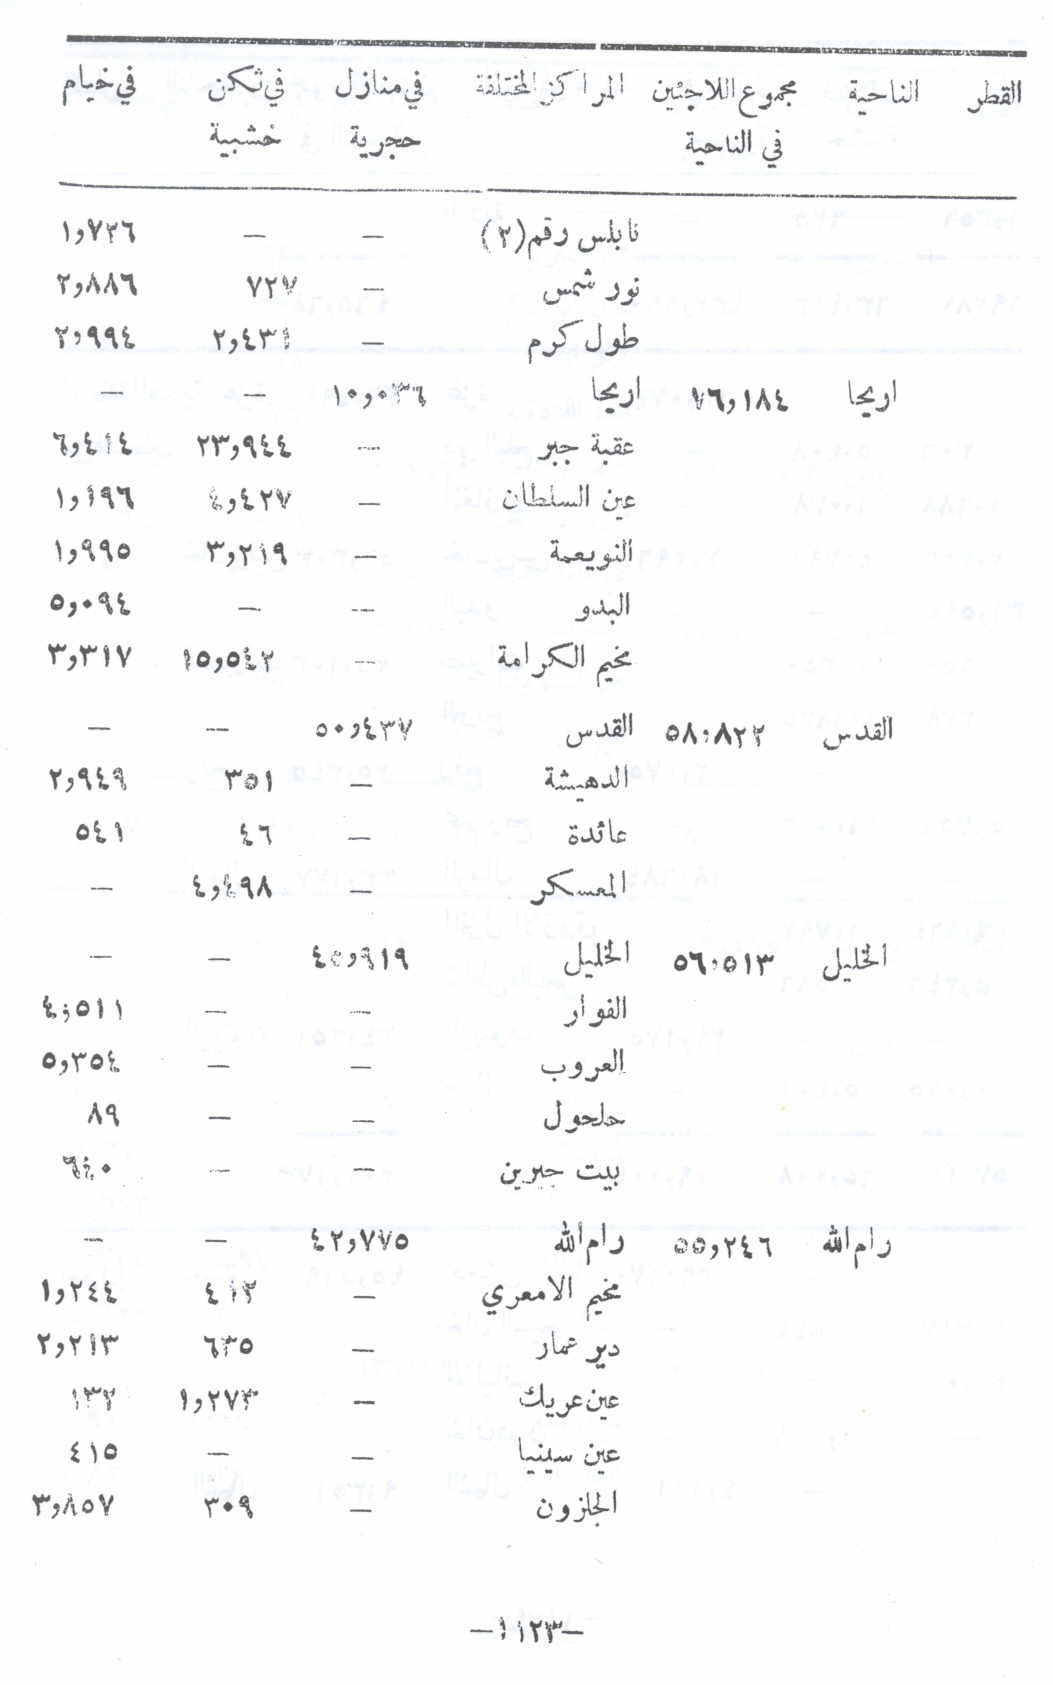 القطر الناحية مجموع اللاجئين المراكز المختلفة في منازل في ثكن في خيام
في الناحية حجرية خشبية
نابلس رقم (٢) — — ١,٧٣٦
نور شمس — ٧٢٧ ٢,٨٨٦
طول كرم — ٢,٤٣١ ٢,٩٩٤
اريحا ٧٦,١٨٤ اريحا ١٠,٠٣٦ — —
عقبة جبر — ٢٣,٩٤٤ ٦,٤١٤
عين السلطان — ٤,٤٢٧ ١,١٩٦
النويعمة — ٣,٢١٩ ١,٩٩٥
البدو — — ٥,٠٩٤
مخيم الكرامة — ١٥,٥٤٢ ٣,٣١٧
القدس ٥٨,٨٢٢ القدس ٥٠,٤٣٧ — —
الدهيشة — ٣٥١ ٢,٩٤٩
عائدة — ٤٦ ٥٤١
المعسكر — ٤,٤٩٨ —
الخليل ٥٦,٥١٣ الخليل ٤٥,٩١٩ — —
الفوار — — ٤,٥١١
العروب — — ٥,٣٥٤
حلحول — — ٨٩
بيت جبرين — — ٦٤٠
رام الله ٥٥,٢٤٦ رام الله ٤٢,٧٧٥ — —
مخيم الامعري — ٤١٣ ١,٢٤٤
دير عمار — ٦٣٥ ٢,٢١٣
عين عريك — ١,٢٧٣ ١٣٢
عين سينيا — — ٤١٥
الجلزون — ٣٠٩ ٣,٨٥٧
—١١٢٣—